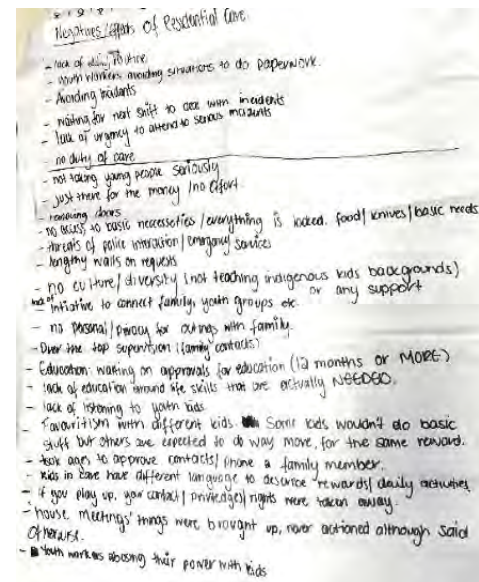 Negatives/effects of Residential Care
- lack of daily routine
- youth workers avoiding situations to do paperwork.
- Avoiding incidents
- waiting for next shift to deal with incidents
- lack of urgency to attend to serious incidents
- no duty of care
- not taking young people seriously
- just there for the money / no effort.
- removing doors
- no access to basic necesseties / everything is locked. food / knives / basic needs
- threats of police interaction / emergency services
- lengthy waits on requests
- no culture / diversity (not teaching indigenous kids backgrounds)
or any support
lack of intiative to connect family, youth groups etc.
- no personal / privacy for outings with family.
- Over the top supervision (family contacts)
- Education: waiting on approvals for education (12 months or MORE)
- lack of education around life skills that are actually NEEDED.
- lack of listening to youth kids.
- Favouritism with different kids. Some kids wouldn't do basic
stuff but others are expected to do way more, for the same reward.
- took ages to approve contacts / phone a family member.
- kids in care have different language to describe "rewards / daily activities
- if you play up, your contact / priviledges / rights were taken away.
- 'house meetings' things were brought up, never actioned although said
otherwise.
- Youth workers abusing their power with kids